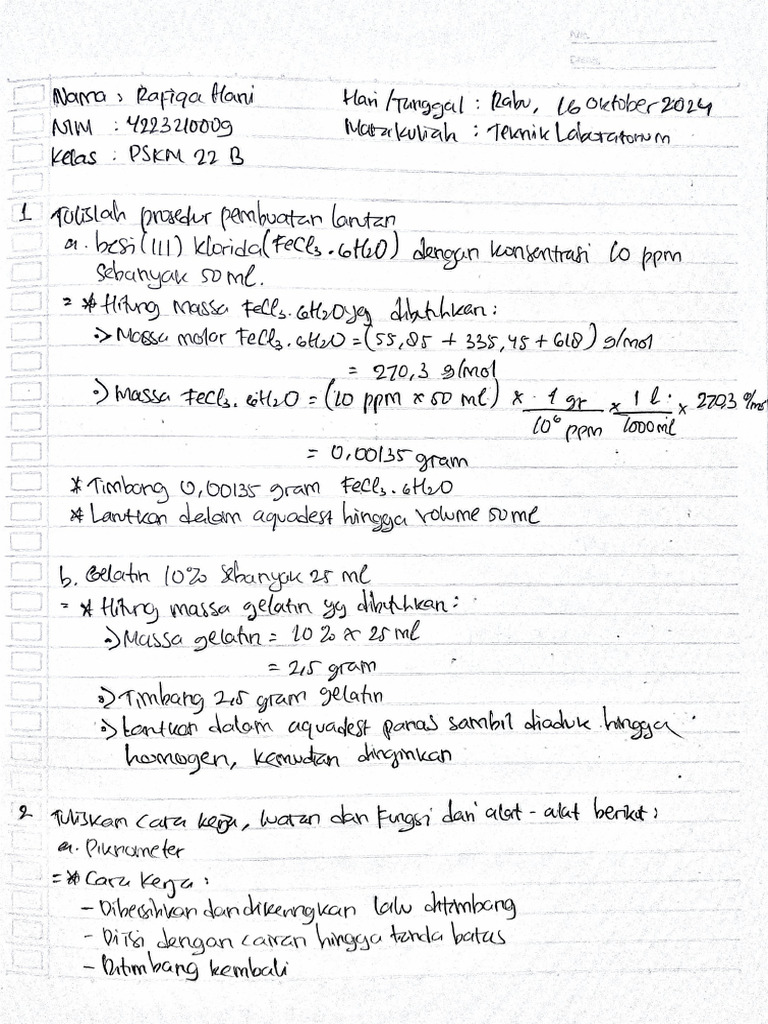 No.
Date.
Nama : Rafiqa Hani Hari/Tanggal : Rabu, 16 Oktober 2024
NIM : 4223210009 Matakuliah : Teknik Laboratorium
Kelas : PSKM 22 B
1 Tulislah prosedur pembuatan larutan
a. besi (III) klorida (FeCl₃ . 6H₂O) dengan konsentrasi 10 ppm
sebanyak 50 ml.
= * Hitung massa FeCl₃. 6H₂O yg dibutuhkan :
•> Massa molar FeCl₃. 6H₂O = (55,85 + 335,45 + 618) g/mol
= 270,3 g/mol
•> Massa FeCl₃. 6H₂O = (10 ppm x 50 ml) x 1 gr / 10⁶ ppm x 1 l / 1000 ml x 270,3 g/mol
= 0,00135 gram
* Timbang 0,00135 gram FeCl₃. 6H₂O
* Larutkan dalam aquadest hingga volume 50 ml
b. Gelatin 10% sebanyak 25 ml
= * Hitung massa gelatin yg dibutuhkan :
•> Massa gelatin = 10% x 25 ml
= 2,5 gram
•> Timbang 2,5 gram gelatin
•> Larutkan dalam aquadest panas sambil diaduk hingga
homogen, kemudian dinginkan
2 Tuliskan cara kerja, dan fungsi dari alat - alat berikut :
a. Piknometer
= * Cara Kerja :
- Dibersihkan dan dikeringkan lalu ditimbang
- Diisi dengan cairan hingga tanda batas
- Ditimbang kembali